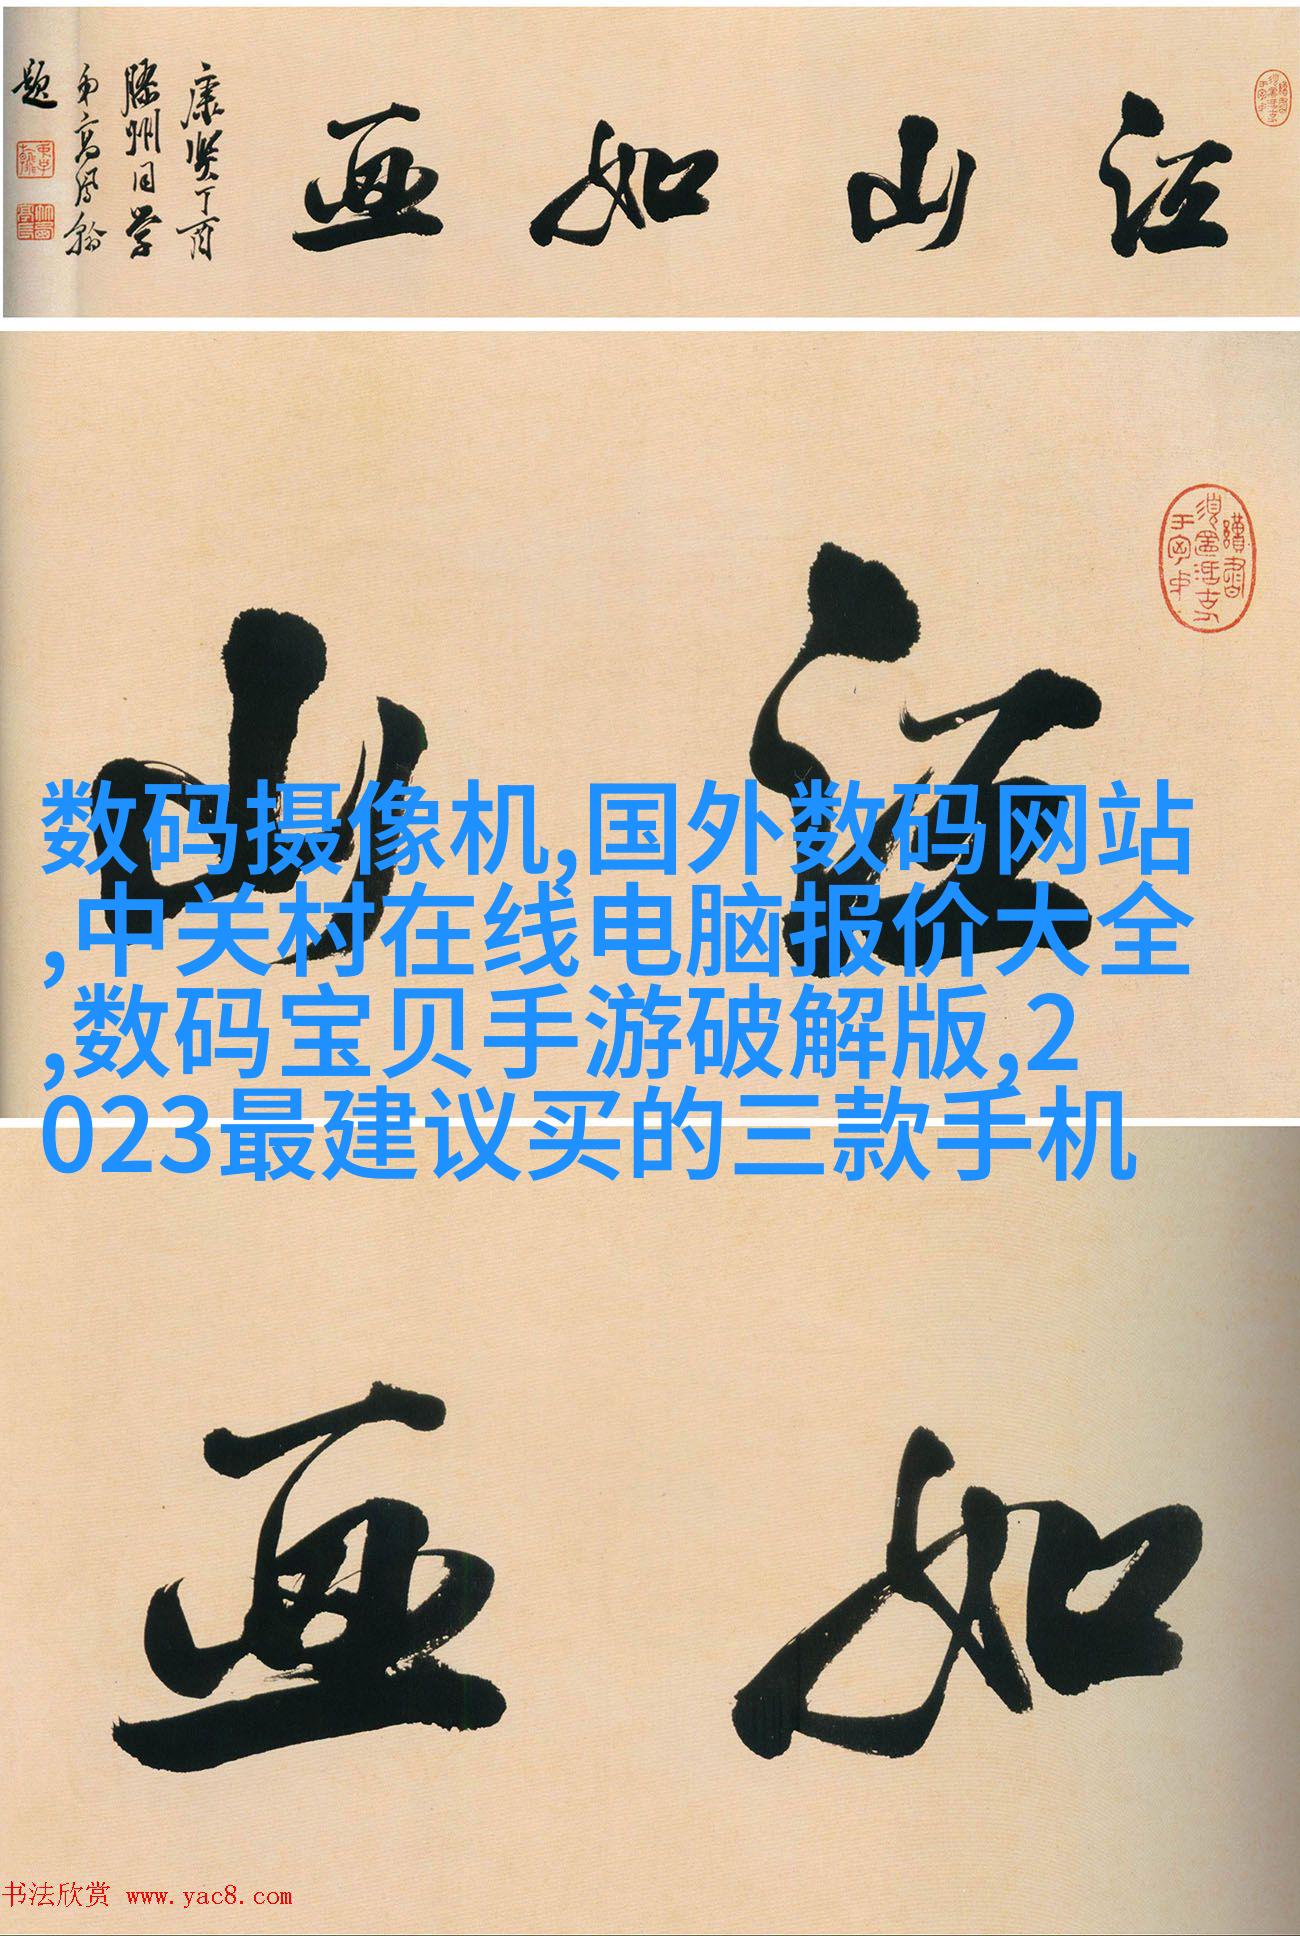 江山如画
康熙丁酉
滕州同学
弟高凤翰
题
江山
数码摄像机,国外数码网站
,中关村在线电脑报价大全
,数码宝贝手游破解版,2
023最建议买的三款手机
如画
书法欣赏 www.yac8.com